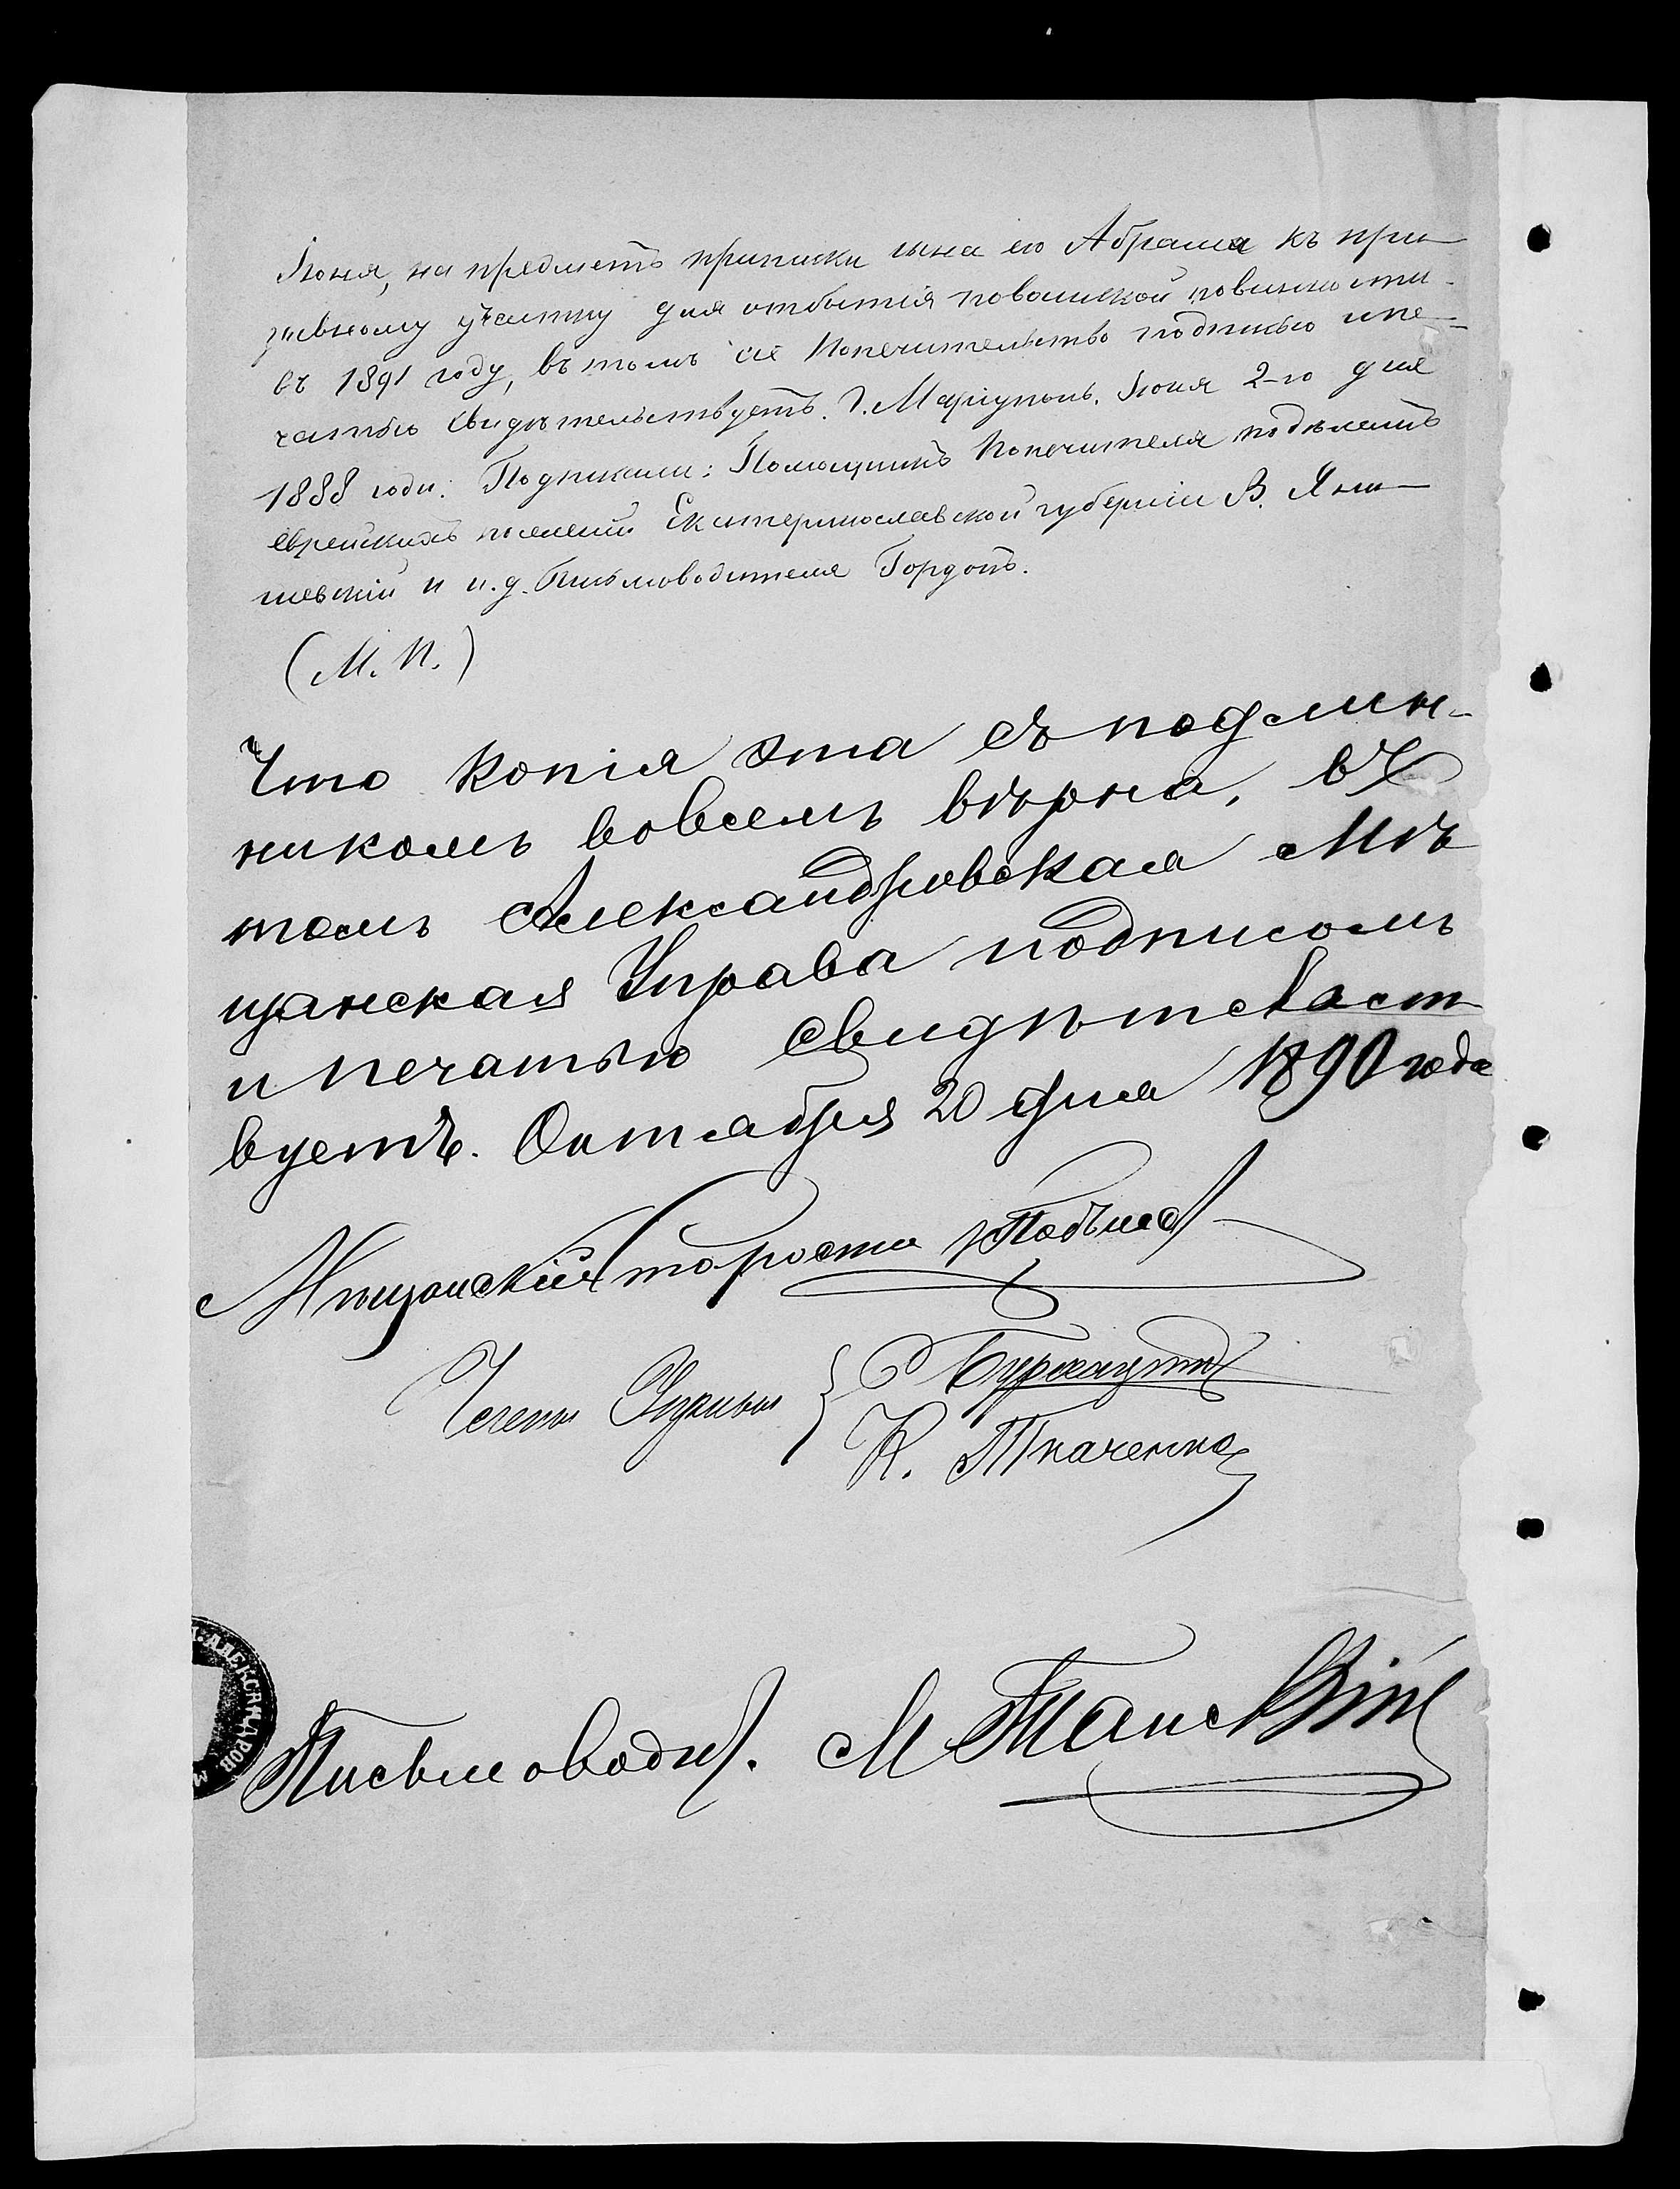 Іюня, на предметъ приписки сына его Абрама къ при-
зывному участку для отбытія по воинской повинности
въ 1891 году, въ томъ сіе Попечительство подписью и пе-
чатью свидѣтельствуетъ. Г. Маріуполь. Іюня 2-го дня
1888 года. Подписали: Помощникъ Попечителя
еврейскихъ поселеній Екатеринославской губерніи В. Яни-
шевскій и и. д. Письмоводителя Гордонъ.
(М. П.)
Что копія эта съ подлин-
никомъ вовсемъ вѣрна, въ
томъ Александровская Мѣ
щанская Управа подписомъ
и печатью свидѣтельст
вуетъ. Октября 20 дня 1890 года
Мѣщанскій Староста
Члены Управы {
К. Ткаченко
АЛЕКСАНДРОВ
Письмоводит. М